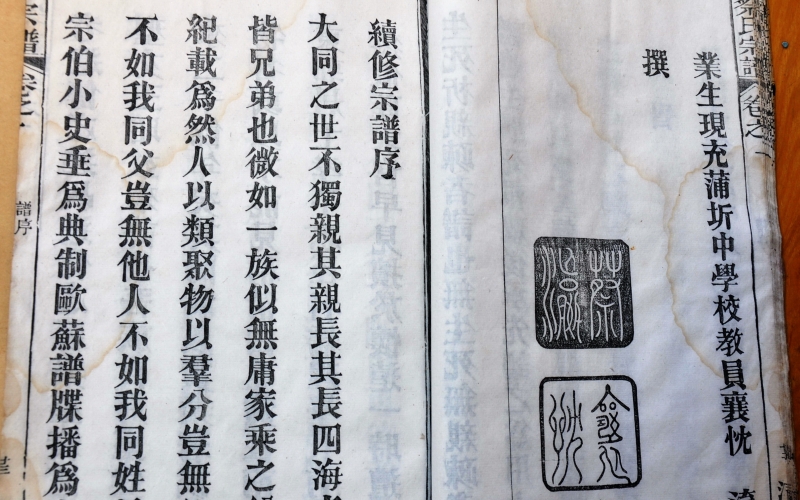 蔡氏宗譜 卷之一
業生現充蒲圻中學校教員襄忱
撰
續修宗譜序
大同之世不獨親其親長其長四海
皆兄弟也微如一族似無庸家乘之
紀載爲然人以類聚物以羣分豈無
不如我同父豈無他人不如我同姓
宗伯小史垂爲典制歐蘇譜牒播爲
宗譜 卷之一
譜序